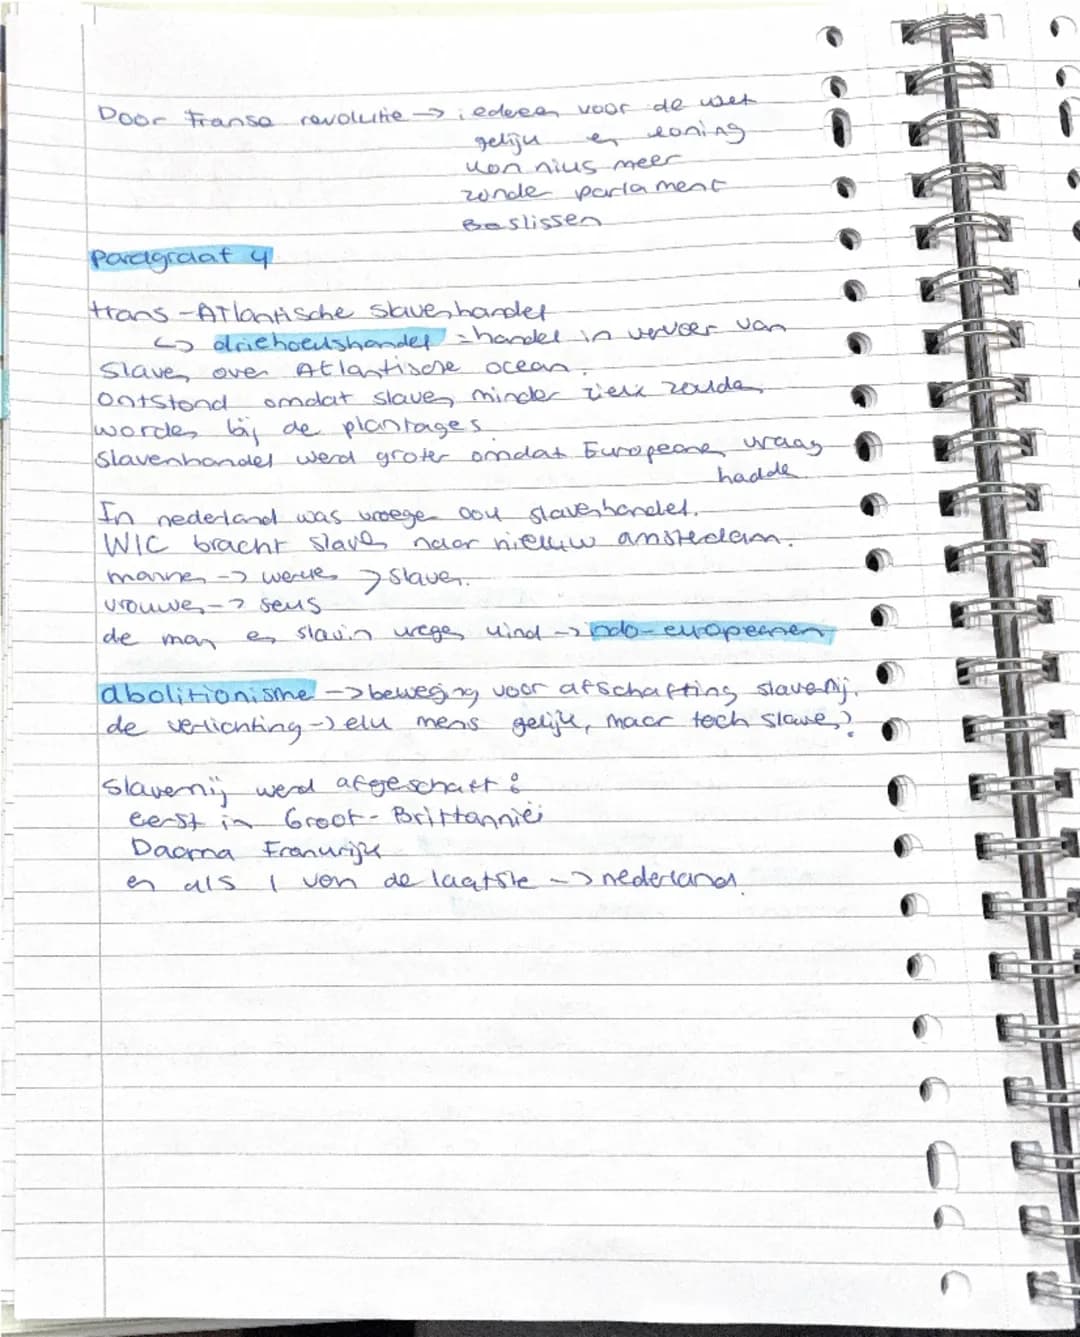 Door Franse revolutie -> iedereen voor de wet
gelijk en koning
kon niks meer
zonder parlament
Beslissen
Paragraaf 4
trans-Atlantische slavenhandel
↳ driehoekshandel = handel in vervoer van
slaven over Atlantische ocean.
ontstond omdat slaven minder ziek zouden
worden bij de plantages.
slavenhandel werd groter omdat Europeanen vraag
hadden
In nederland was vroeger ook slavenhandel.
WIC bracht slaven naar nieuw amsterdam.
mannen -> werken > slaven.
vrouwen -> seks
de man en slavin kregen kind -> indo-europeanen
abolitionisme -> beweging voor afschaffing slavernij.
de verlichting -> elk mens gelijk, maar toch slaven?
Slavernij werd afgeschaft:
eerst in Groot-Brittannië
Daarna Frankrijk
en als 1 van de laatste -> nederland.